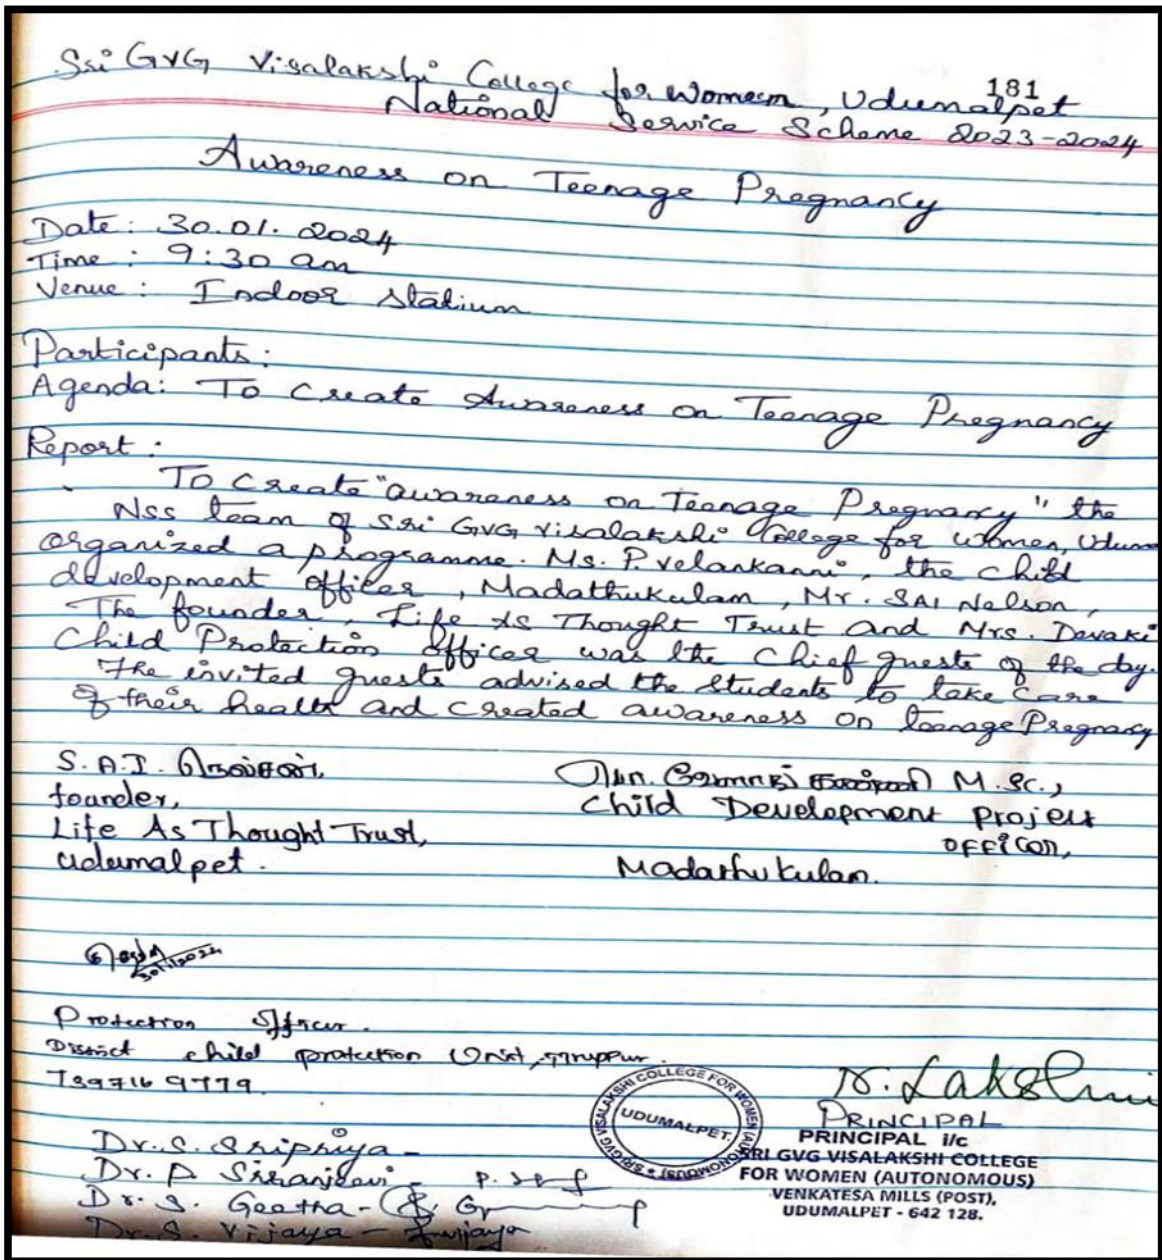 181
Sri GVG Visalakshi College for Women, Udumalpet
National Service Scheme 2023-2024
Awareness on Teenage Pregnancy
Date: 30.01.2024
Time: 9:30 am
Venue: Indoor Statium
Participants:
Agenda: To Create Awareness on Teenage Pregnancy
Report:
To Create "awareness on Teenage Pregnancy" the
Nss team of Sri GVG Visalakshi College for women, Udum
organized a programme. Ms. P. Velankanni, the child
development officer, Madathukulam, Mr. SAI Nelson,
The founder, Life As Thought Trust and Mrs. Devaki
Child Protection officer was the Chief guests of the day.
The invited guests advised the Students to take care
of their health and created awareness on teenage Pregnancy
S. A. I. நெல்சன்,
founder,
Life As Thought Trust,
udumalpet.
M.Sc.,
Child Development Project
OFFicer,
Madathukulam.
30/1/2024
Protection Officer.
District child protection Unit, Tiruppur.
UDUMALPET.
SRI GVG VISALAKSHI COLLEGE FOR WOMEN (AUTONOMOUS)
N. Lakshmi
PRINCIPAL
PRINCIPAL i/c
SRI GVG VISALAKSHI COLLEGE
FOR WOMEN (AUTONOMOUS)
VENKATESA MILLS (POST),
UDUMALPET - 642 128.
Dr. S. Sripriya -
Dr. P Siranjeevi -
Dr. S. Geetha -
Dr. S. Vijaya - Svijaya